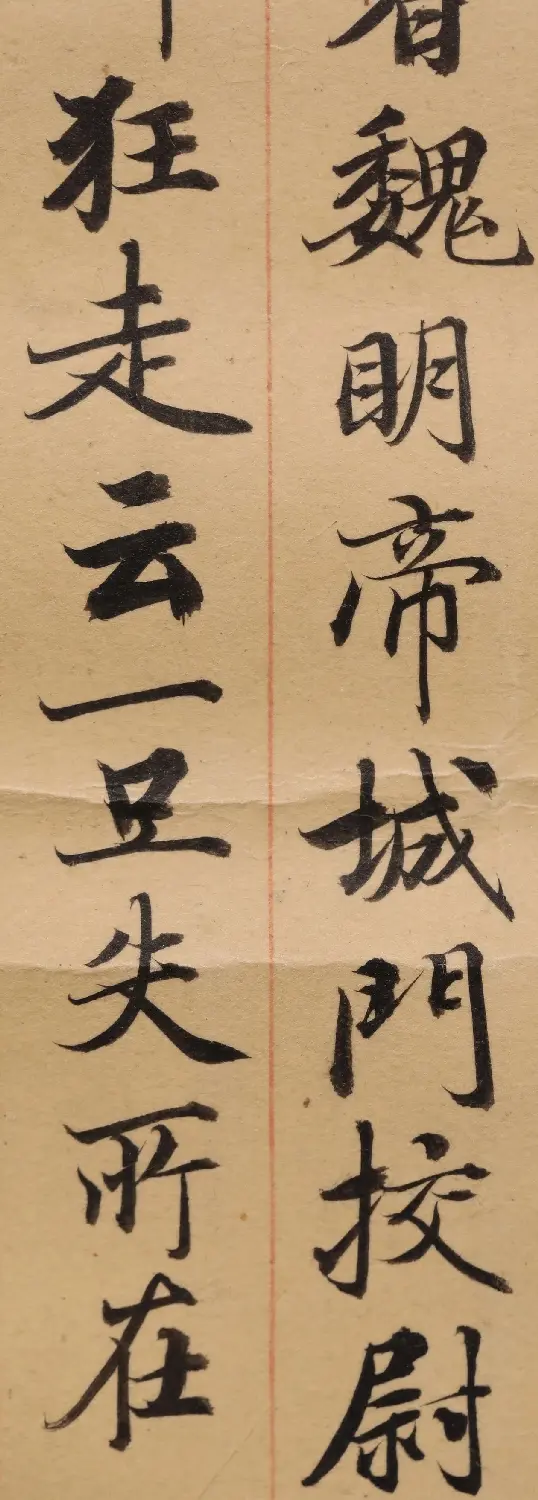 者魏明帝城門挍尉
狂走云一旦失所在